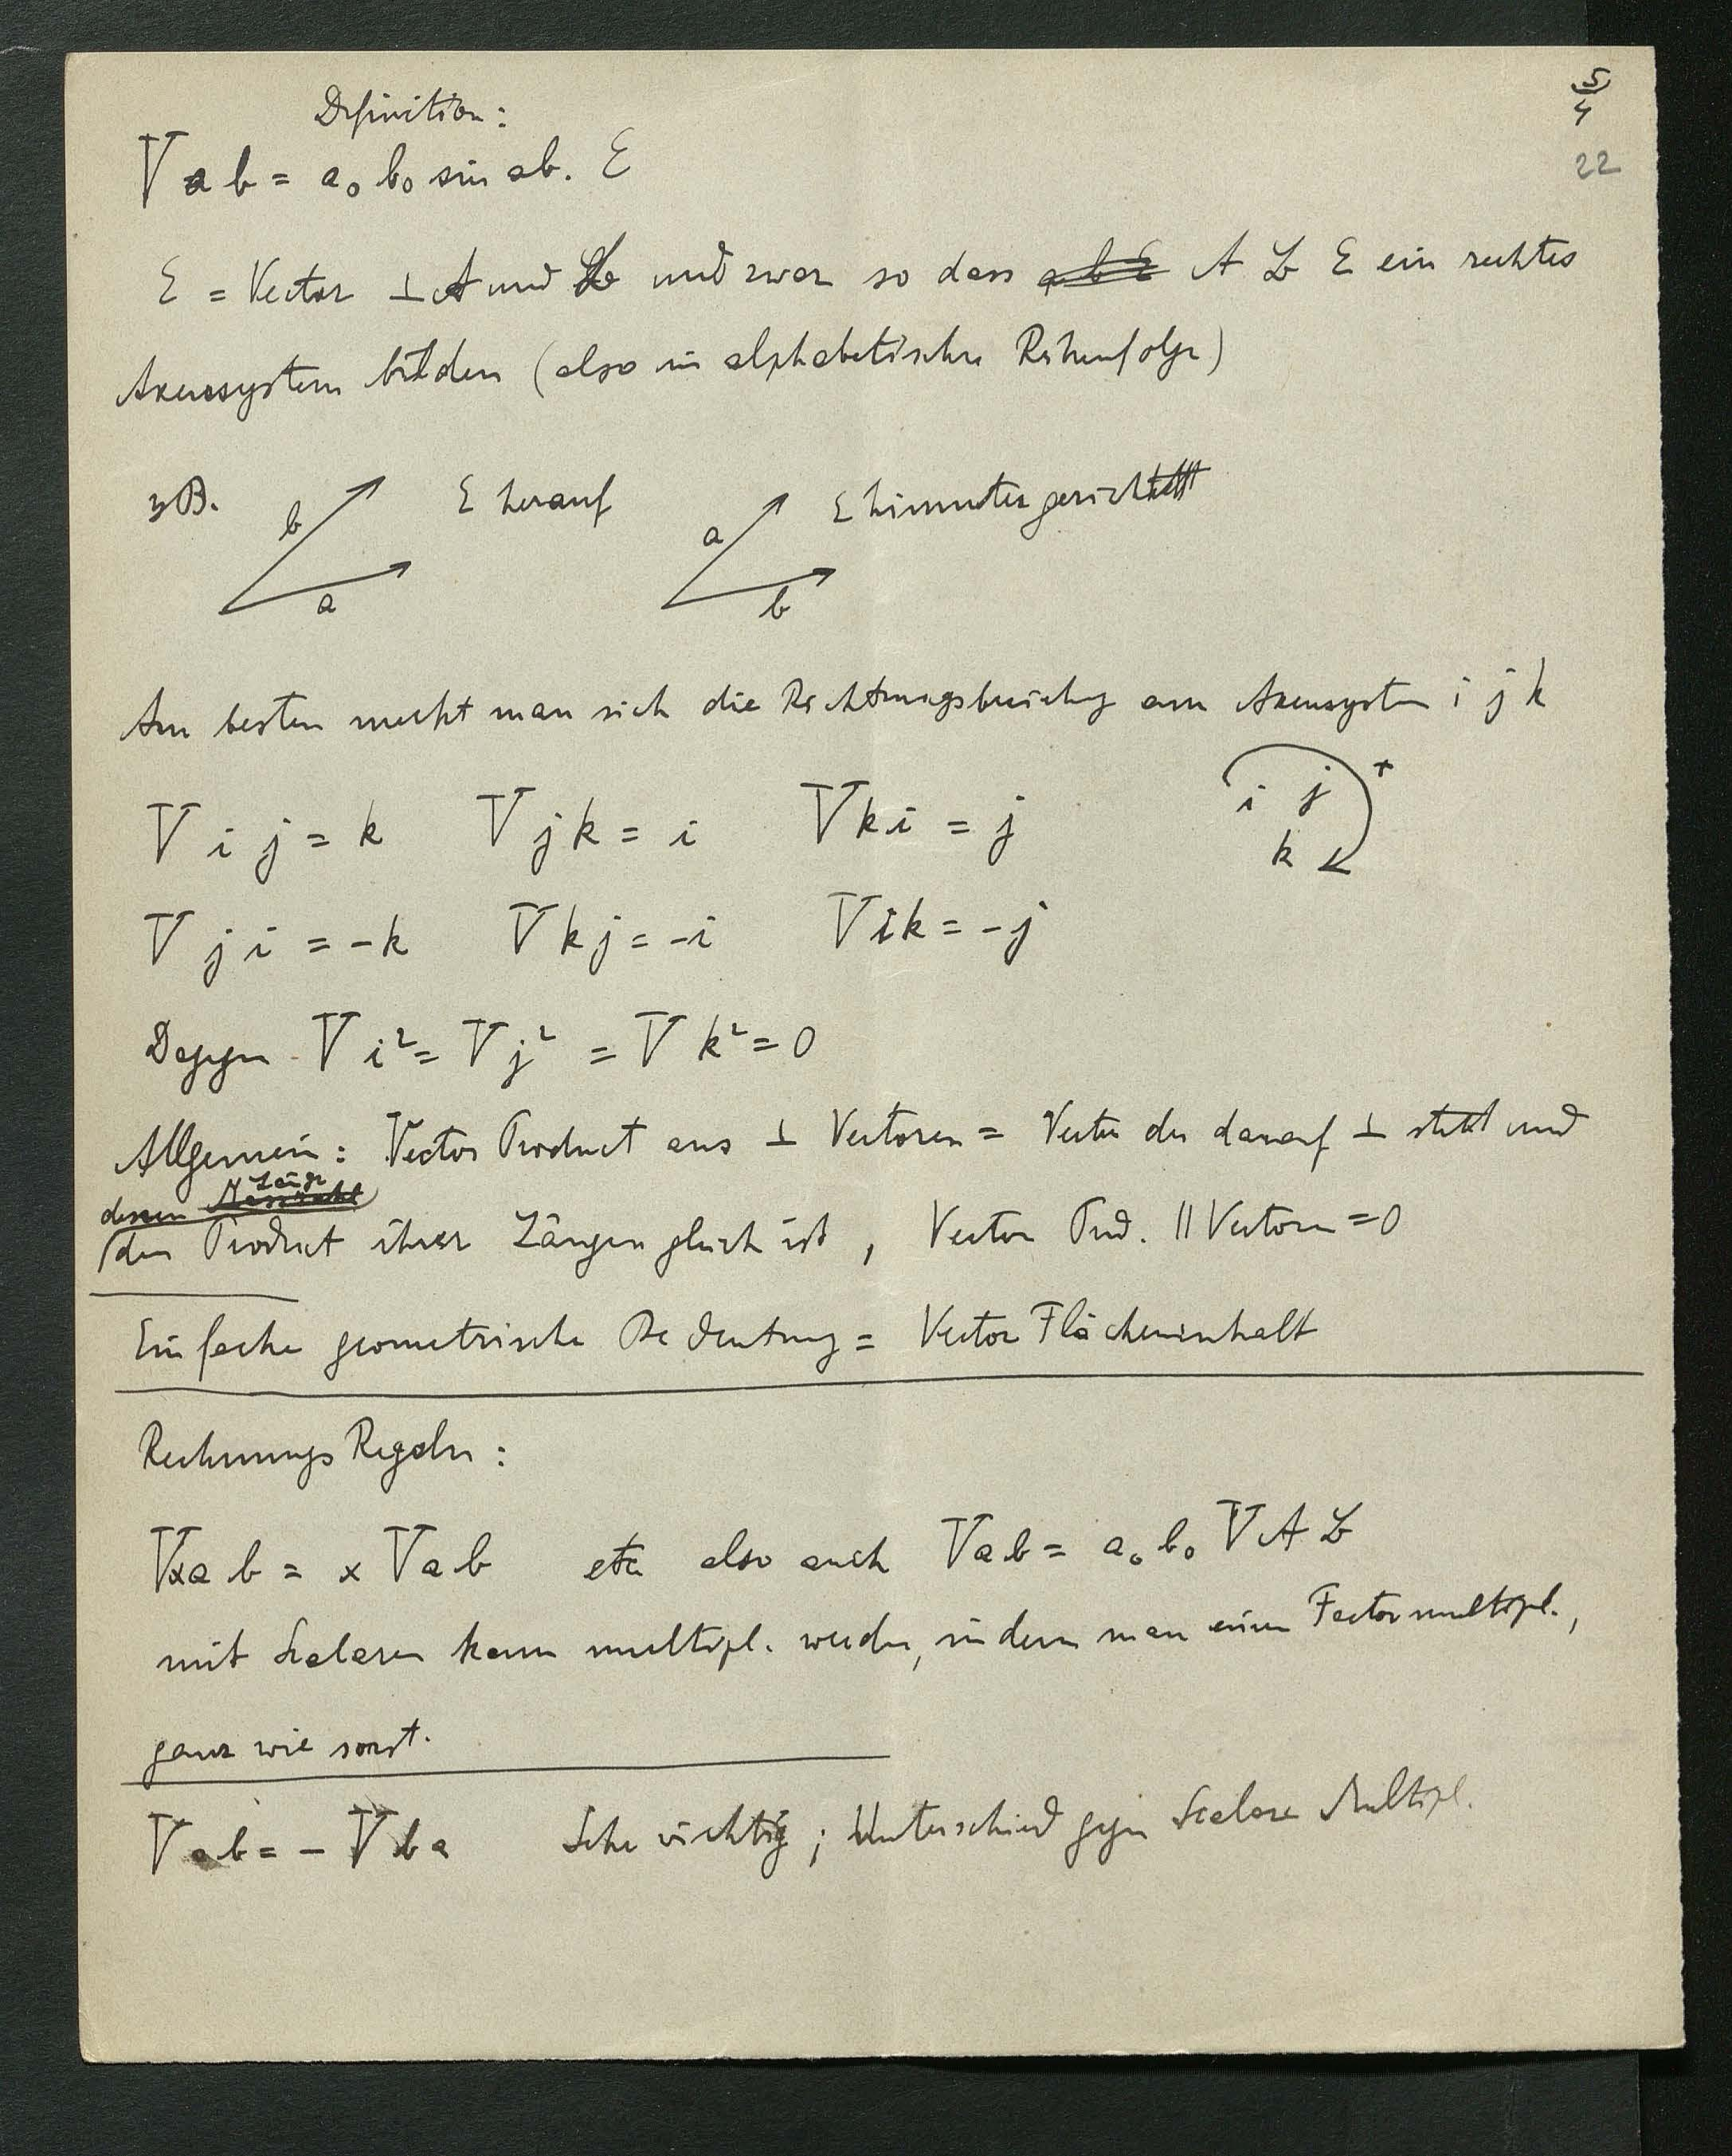 5/4
22
Definition:
V a b = a₀ b₀ sin ab. E
E = Vector ⊥ A und B und zwar so dass a b E A B E ein rechtes
Axensystem bilden (also in alphabetischer Reihenfolge)
zB. b a E herauf a b E hinunter gerichtet
Am besten merkt man sich die Richtungsbeziehung am Axensystem i j k
V i j = k V j k = i V k i = j i j k +
V j i = -k V k j = -i V i k = -j
Dagegen V i² = V j² = V k² = 0
Allgemein: Vector Product aus ⊥ Vectoren = Vector der darauf ⊥ steht und
dessen Länge
dem Product ihrer Längen gleich ist, Vector Prod. || Vectoren = 0
Einfache geometrische Bedeutung = Vector Flächeninhalt
Rechnungs Regeln:
V x a b = x V a b etc also auch V a b = a₀ b₀ V A B
mit Scalaren kann multipl. werden, indem man einen Factor multipl.,
ganz wie sonst.
V a b = - V b a Sehr wichtig; Unterschied gegen Scalare Multipl.